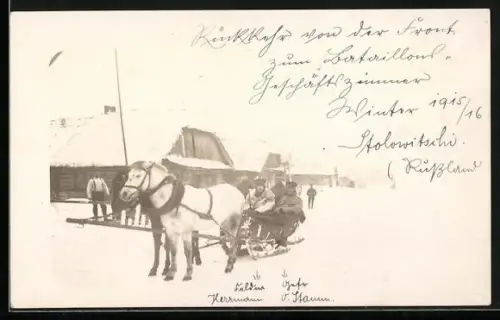 Rückkehr von der Front
zum Bataillons-
Geschäftszimmer
Winter 1915/16
Stolowitschi.
(Rußland
Herrmann
v. Stamm.